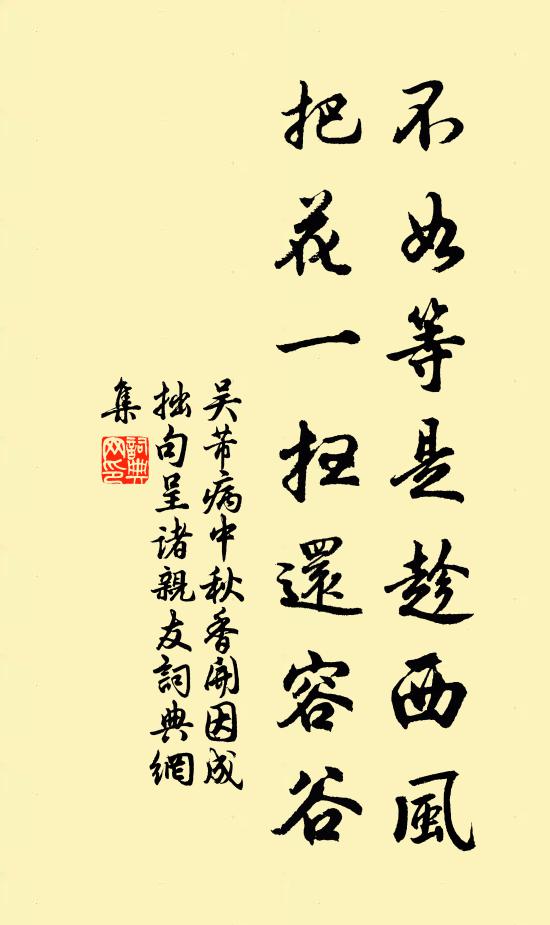 不如等是趁西風
把花一扭還容谷
吴芾病中秋香開因成
拙句呈诸親友詞典網
集
詞典網印